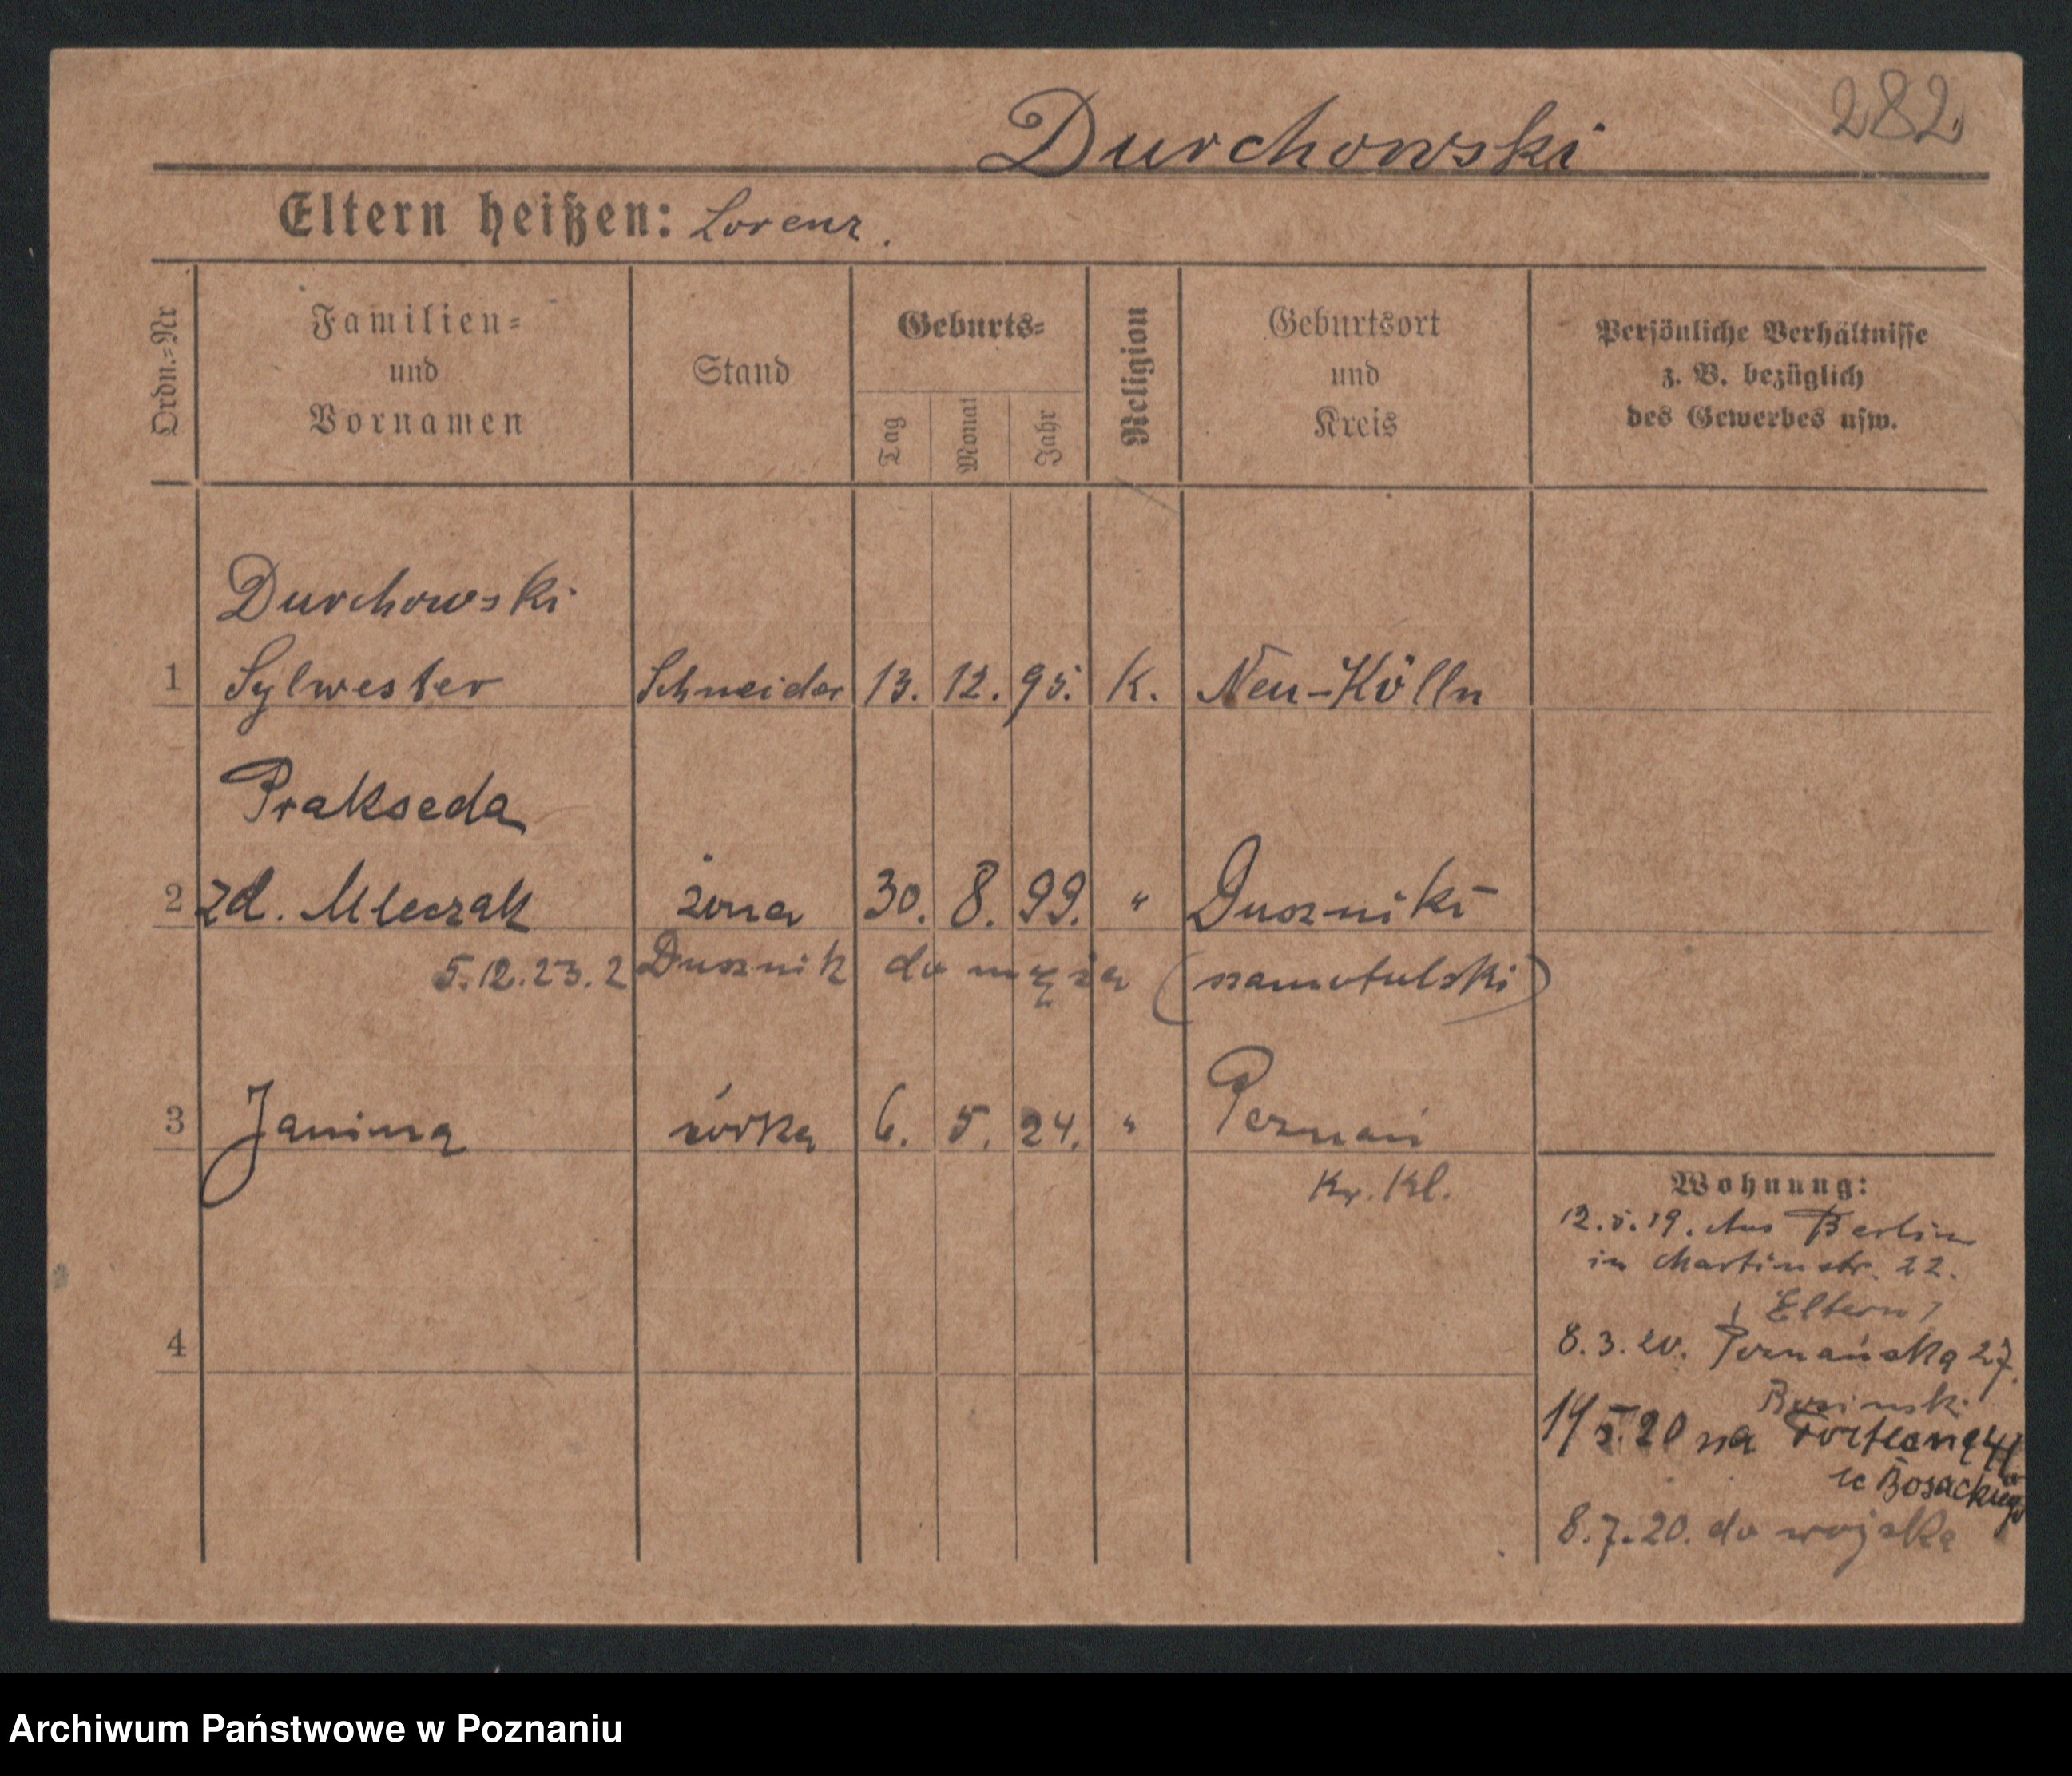 282
Durchowski
Eltern heißen: Lorenz.
Ordn.=Nr
Familien=
und
Vornamen
Stand
Geburts=
Tag
Monat
Jahr
Religion
Geburtsort
und
Kreis
Persönliche Verhältnisse
z. B. bezüglich
des Gewerbes usw.
Durchowski
1 Sylwester Schneider 13. 12. 95. K. Neu-Kölln
Prakseda
2 zd. Mleczak żona 30. 8. 99. " Duszniki
5.12.23. z Dusznik do męża (szamotulski)
3 Janina córka 6. 5. 24. " Poznań
Kr. Kl.
4
Wohnung:
12.5.19. Aus Berlin
in Martinstr. 22.
(Eltern)
8.3.20. Poznańska 27.
14/5.20 na
u Bosackiego
8.7.20. do wojska
Archiwum Państwowe w Poznaniu